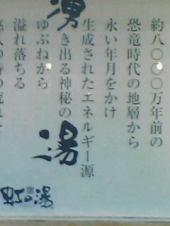 湧
約八〇〇〇万年前の
恐竜時代の地層から
永い年月をかけ
生成されたエネルギー源
湧き出る神秘の
湯
ゆぶねから
溢れ落ちる
の湯